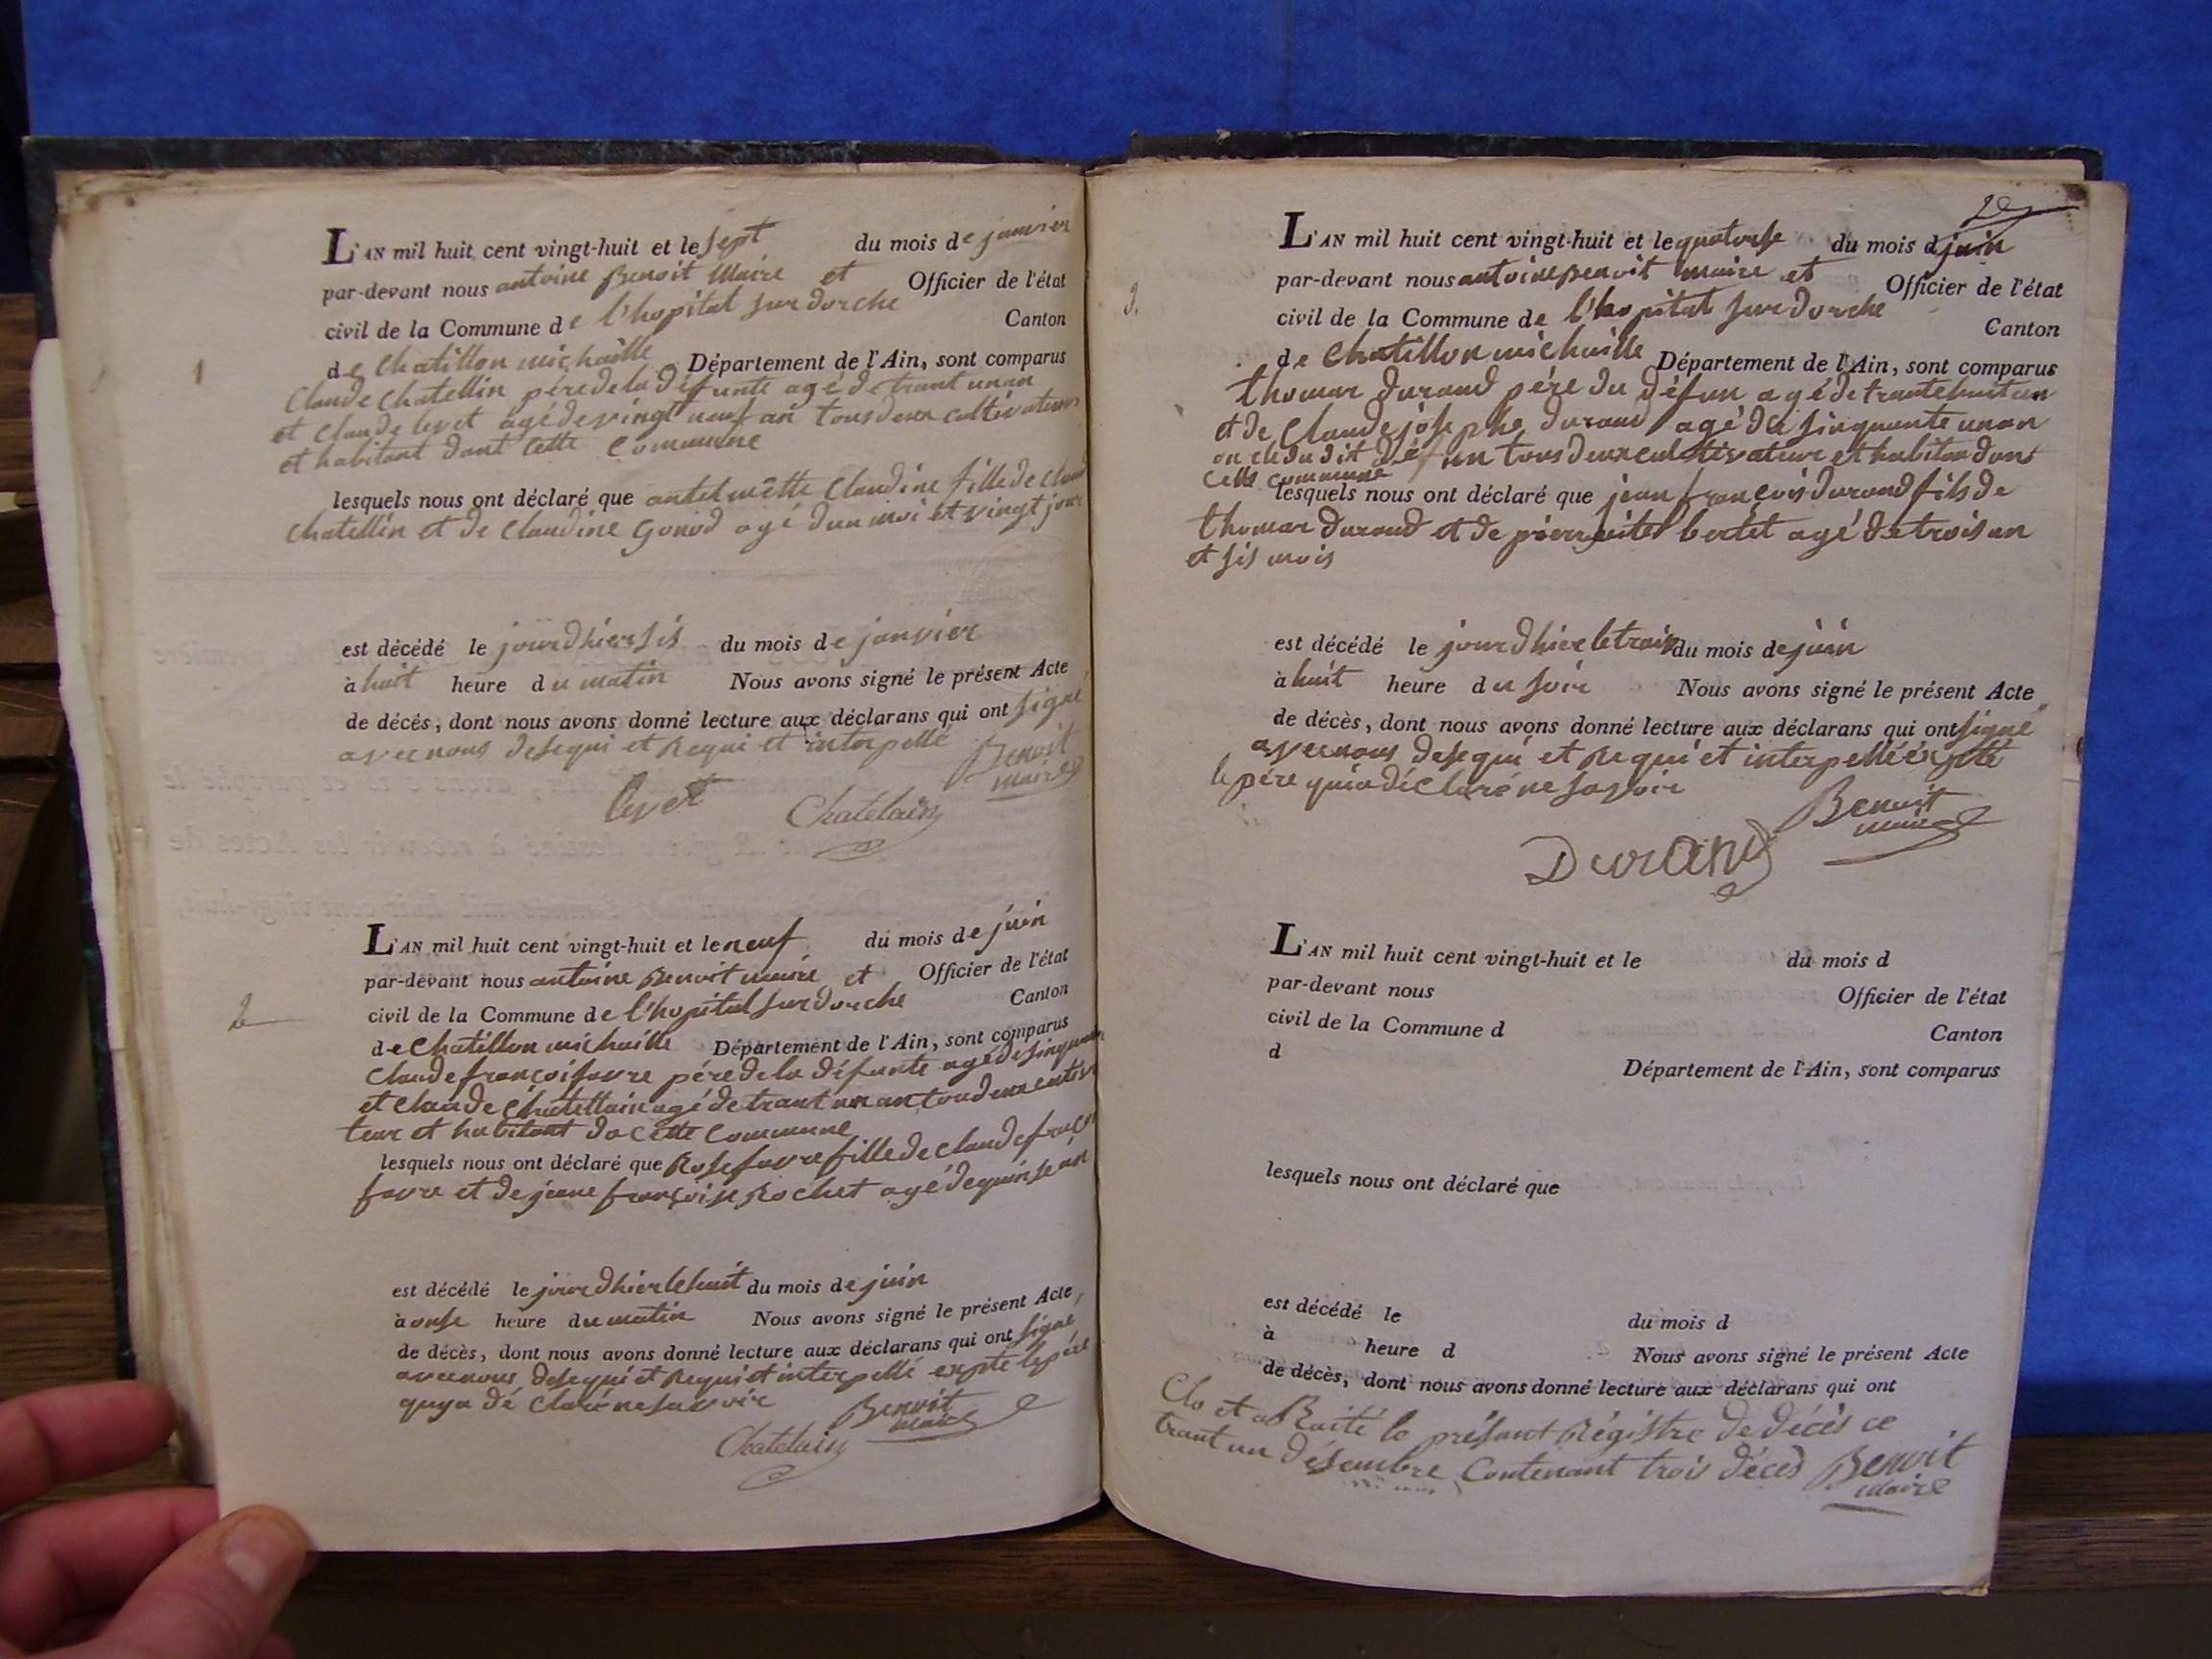 L'AN mil huit cent vingt-huit et le sept du mois de janvier
par-devant nous antoine Benoit Maire et Officier de l'état
civil de la Commune de l'hopital sur dorche Canton
de Chatillon michaille Département de l'Ain, sont comparus
1
Claude Chatellin pére de la défunte agé de trant un an
et Claude levet agé de vingt neuf an tous deux cultivateurs
et habitant dant cette Commune
lesquels nous ont déclaré que antelmette Claudine fille de
Chatellin et de Claudine Gonod agé dun moi et vingt jour
est décédé le jour dhier sis du mois de janvier
à huit heure du matin Nous avons signé le présent Acte
de décés, dont nous avons donné lecture aux déclarans qui ont signé
avec nous de se qui et Requi et interpellé Benoit
maire
levet Chatelain
L'AN mil huit cent vingt-huit et le neuf du mois de juin
par-devant nous antoine Benoit maire et Officier de l'état
2
civil de la Commune de l'hopital sur dorche Canton
de Chatillon michaille Département de l'Ain, sont comparus
Claude françoi favre pére de la défunte agé de
et Claude Chatellain agé de trant un an tou deux
teur et habitant da cette Commune
lesquels nous ont déclaré que Rose favre fille de claude
favre et de jeane françoise Rochet agé de quinse an
est décédé le jour dhier le huit du mois de juin
à onse heure du matin Nous avons signé le présent Acte,
de décès, dont nous avons donné lecture aux déclarans qui ont signé
avec nous de se qui et Requi et interpellé expté le pére
quya dé claré ne savoir Benoit
maire
Chatelain
2e
L'AN mil huit cent vingt-huit et le quatorse du mois d juin
par-devant nous antoine Benoit maire et Officier de l'état
3.
civil de la Commune de l'hopital sur dorche Canton
de Chatillon michaille Département de l'Ain, sont comparus
thomas durand pére du défun agé de trante huit an
et de Claude josephe durand agé de sinquante un an
oncle du dit défun tous deux cultivateur et habiton dant
Cette commune
lesquels nous ont déclaré que jean françois durand fils de
thomas durand et de bertet agé de trois an
et sis mois
est décédé le jour dhier le du mois de juin
à huit heure du soir Nous avons signé le présent Acte
de décès, dont nous avons donné lecture aux déclarans qui ont signé
avec nous de se qui et Re qui et interpellé
le pére qui a dé claré ne savoir
Benoit
maire
Durand
L'AN mil huit cent vingt-huit et le du mois d
par-devant nous Officier de l'état
civil de la Commune d Canton
d Département de l'Ain, sont comparus
lesquels nous ont déclaré que
est décédé le du mois d
à heure d Nous avons signé le présent Acte
de décès, dont nous avons donné lecture aux déclarans qui ont
Clo et a Raité le présant Régistre de décès ce
trant un désembre Contenant trois décès Benoit
Maire